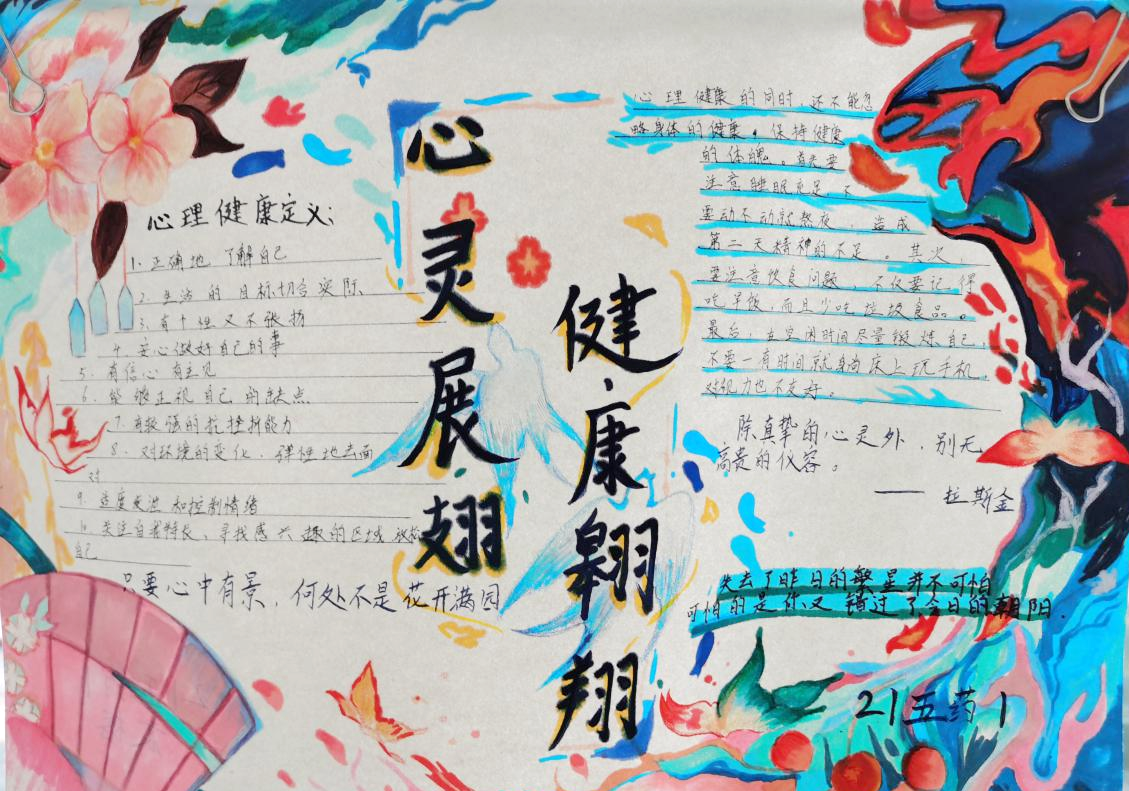 心灵展翅
健康翱翔
心理健康定义:
1. 正确地 了解自己
2. 生活 的 目标切合 实际
3. 有个性又不张扬
4. 安心做好自己的事
5. 有信心 有主见
6. 能够正视自己的缺点
7. 有较强的抗挫折能力
8. 对环境的变化，弹性地去面
对
9. 适度表达和控制情绪
10. 关注自我特长，寻找感兴趣的区域
自己
只要心中有景，何处不是花开满园
心理健康的同时，还不能忽
略身体的健康。保持健康
的体魄。首先要
注意睡眠充足，不
要动不动就熬夜，造成
第二天精神的不足。其次，
要注意饮食问题，不仅要记得
吃早饭，而且少吃垃圾食品。
最后，在空闲时间尽量锻炼自己，
不要一有时间就躺床上玩手机，
对视力也不友好。
除真挚的心灵外，别无
高贵的仪容。
—— 拉斯金
失去了昨日的繁星并不可怕
可怕的是你又错过了今日的朝阳.
21五药1